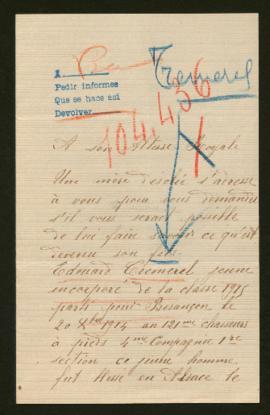 A
Pedir informes
Que se hace así
Devolver
Tremerel
104,436
A son Altesse Royale
Une mère désolée s'adresse
à vous pour vous demander
s'il vous serait possible
de lui faire savoir ce qu'est
devenu son fils
Edouard Tremerel jeune
incorporé de la classe 1915
parti pour Besançon le
20 Xbre 1914 au 121me chasseurs
à pieds 4me Compagnie 1re
section ce jeune homme
fut blessé en Alsace le